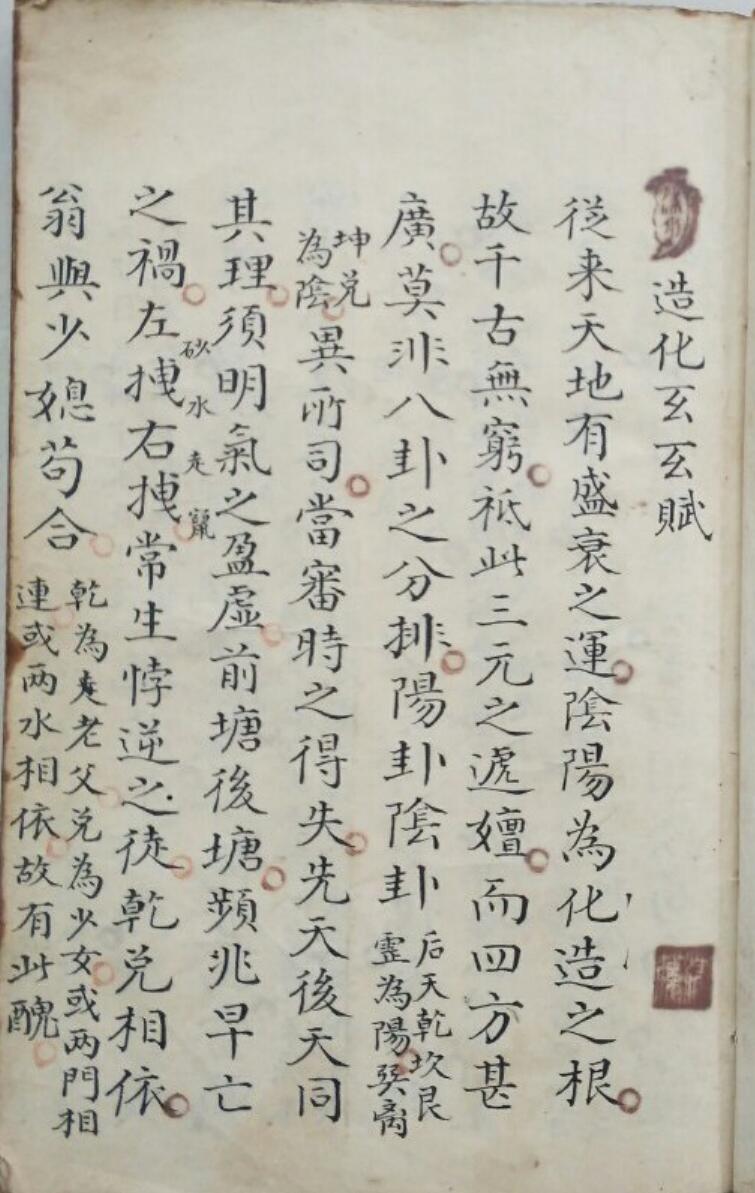 造化玄玄賦
從来天地有盛衰之運陰陽為化造之根
故千古無窮祗此三元之遞嬗而四方甚
廣莫非八卦之分排陽卦陰卦
后天乾坎艮
震為陽巽离
坤兑
為陰
異所司當審時之得失先天後天同
其理須明氣之盈虛前塘後塘頻兆早亡
之禍左拽右拽常生悖逆之徒乾兑相依
砂水
翁與少媳苟合
乾為老父兑為少女或两門相
連或两水相依故有此醜